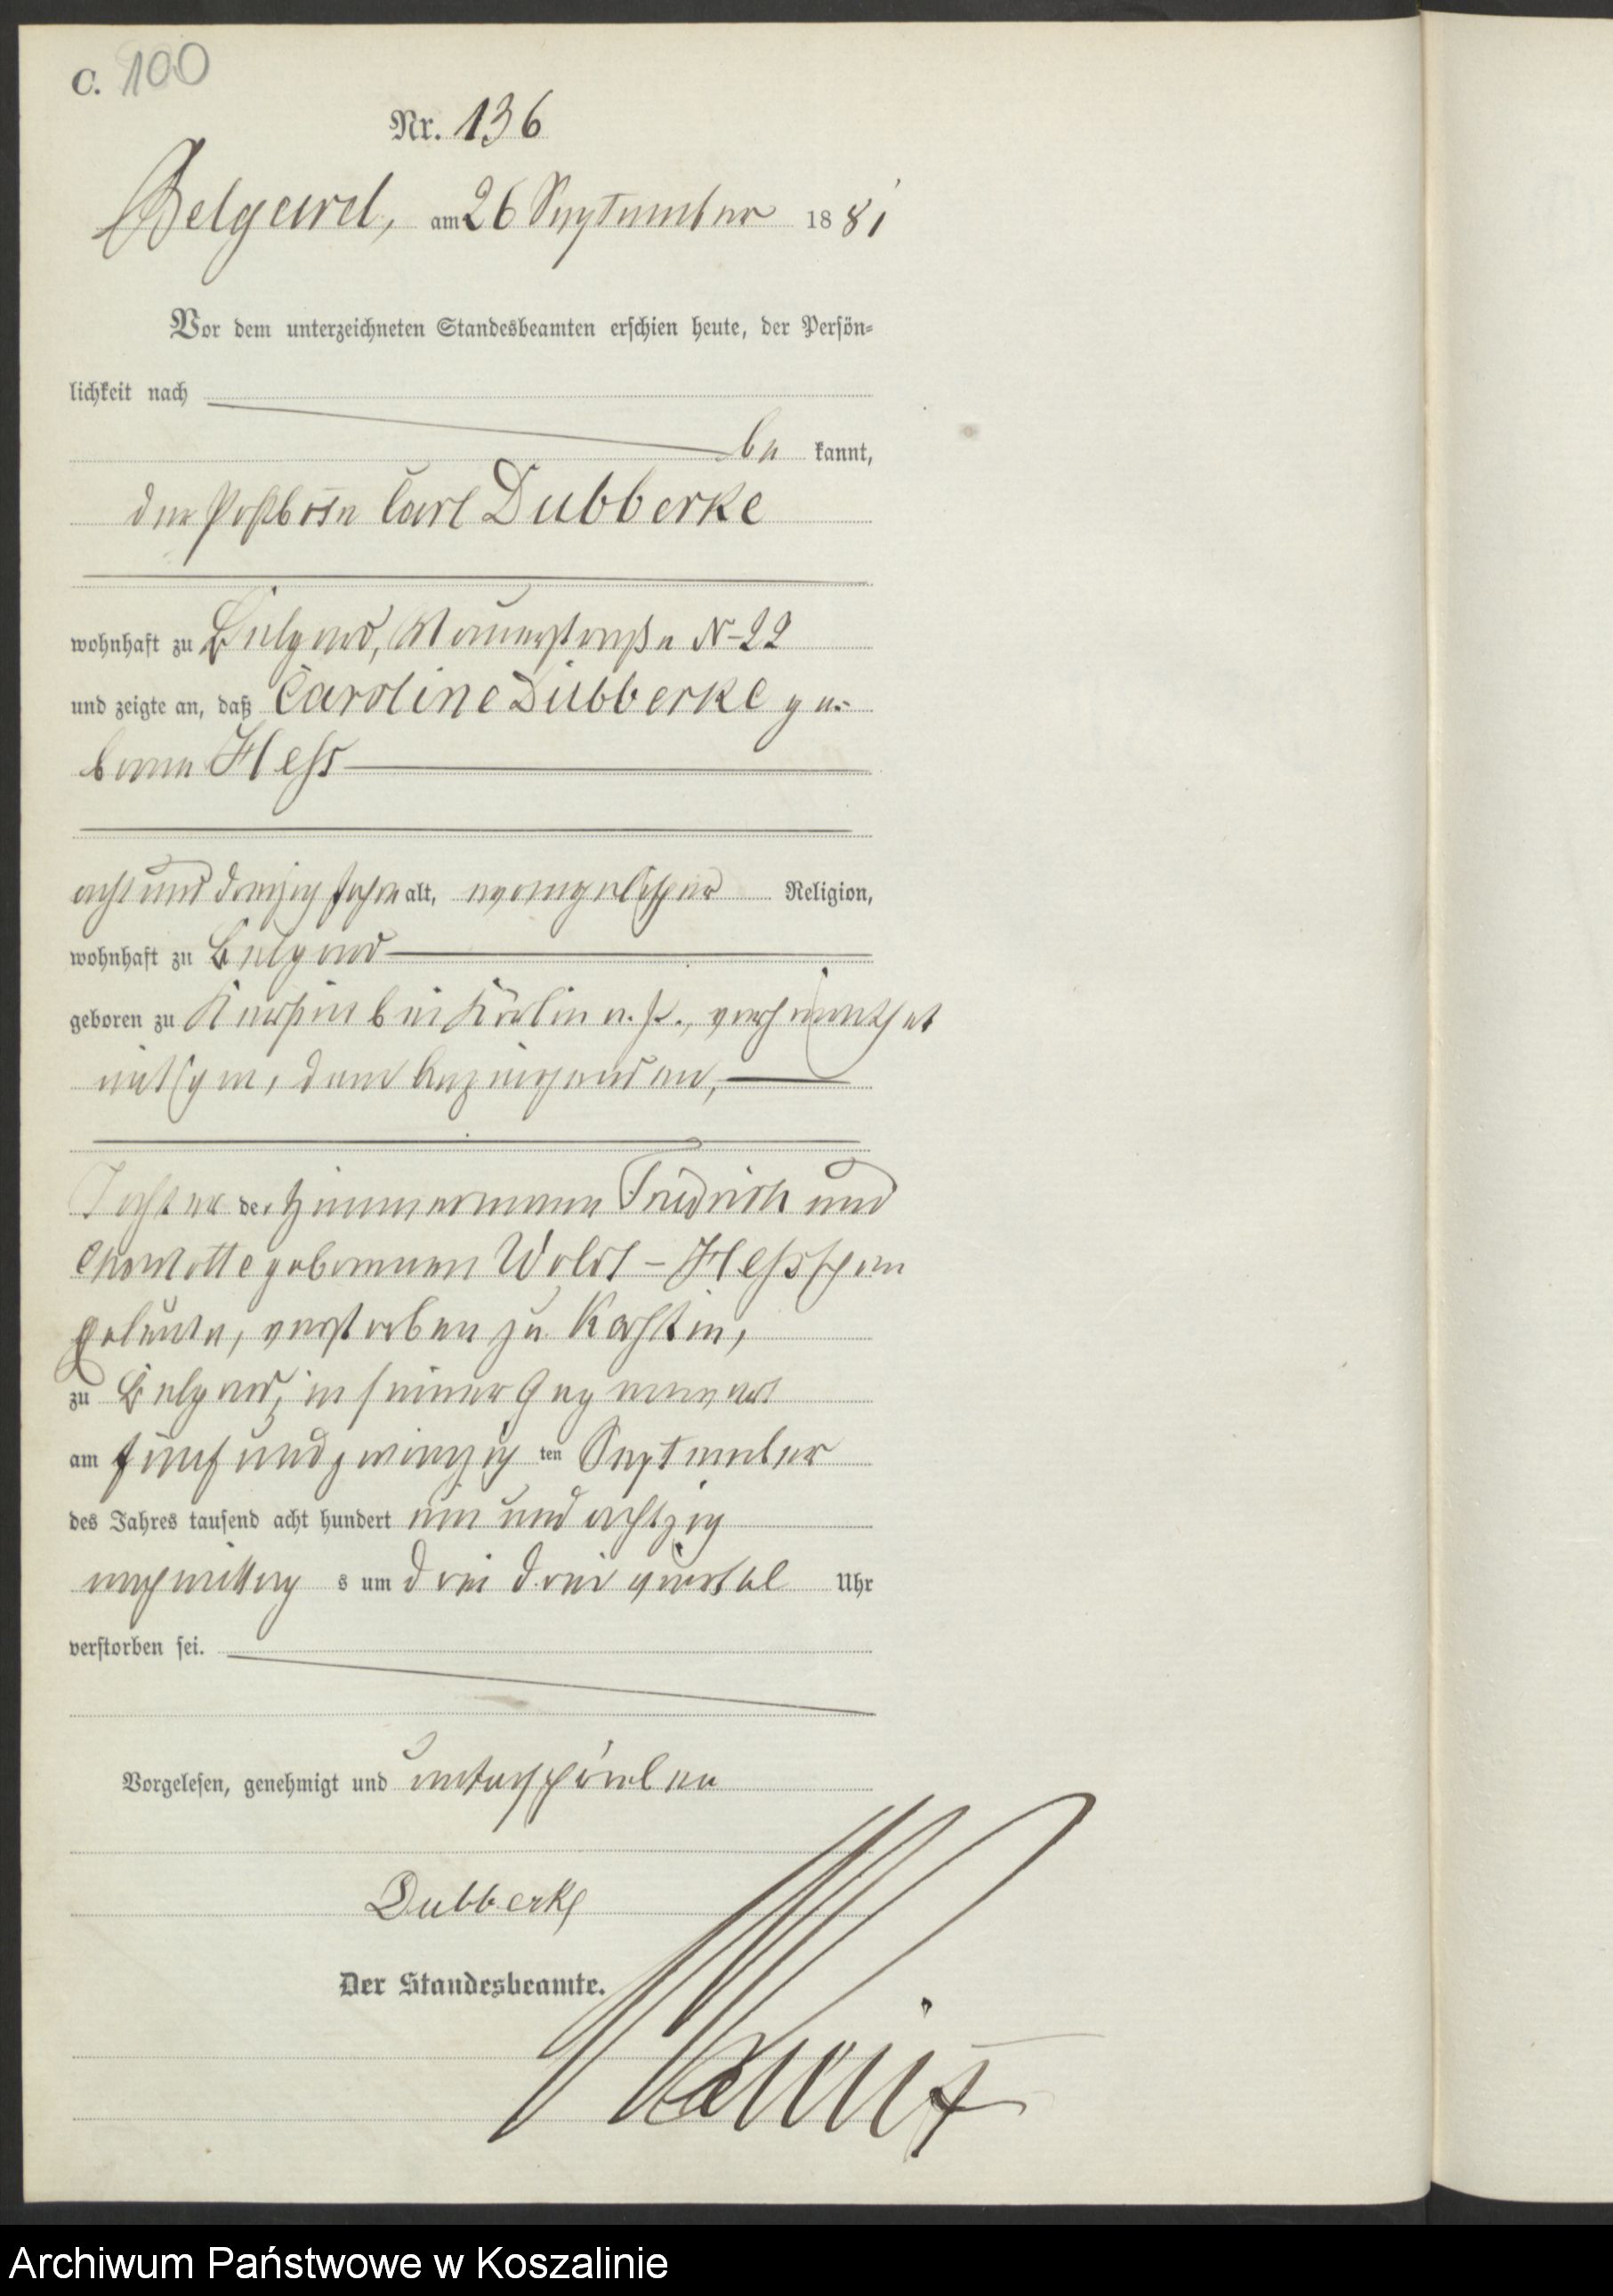 C. 100
Nr. 136
Belgard, am 26 September 1881
Vor dem unterzeichneten Standesbeamten erschien heute, der Persön-
lichkeit nach
be kannt,
der Postbote Carl Dubberke
wohnhaft zu Belgard, Mauerstraße N 22
und zeigte an, daß Caroline Dubberke ge-
borne Hess
acht und dreizig Jahre alt, evangelischer Religion,
wohnhaft zu Belgard
geboren zu bei Körlin a. P., verheirathet
mit ihm, dem Anzeigenden,
Tochter der Zimmermann Friedrich und
Charlotte gebornen Woldt - Hessschen
Eheleute, verstorben zu
zu Belgard, in seiner Gegenwart
am fünf und zwanzig ten September
des Jahres tausend acht hundert ein und achtzig
nachmittag s um drei drei viertel Uhr
verstorben sei.
Vorgelesen, genehmigt und unterschrieben
Dubberke
Der Standesbeamte.
Archiwum Państwowe w Koszalinie